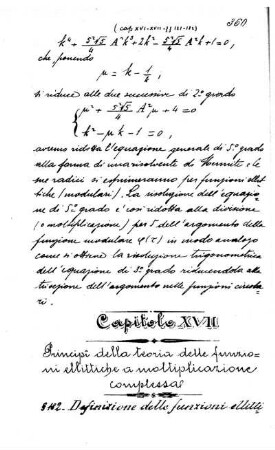 (cap. XVI-XVII - §§ 181-182) 360
k⁴ + 5²√5/4 A²k³ + 2k² - 5²√5/4 A²k + 1 = 0,
che ponendo
μ = k - 1/k,
si riduce alle due successive di 2º grado
{ μ² + 5²√5/4 A²μ + 4 = 0
k² - μk - 1 = 0,
avremo ridotta l'equazione generale di 5º grado
alla forma di una risolvente di Hermite e le
sue radici si esprimeranno per funzioni ellit-
tiche (modulari). La risoluzione dell'equazio-
ne di 5º grado è così ridotta alla divisione
(o moltiplicazione) per 5 dell'argomento della
funzione modulare φ(τ) in modo analogo
come si ottiene la risoluzione trigonometrica
dell'equazione di 3º grado riducendola alla
trisezione dell'argomento nelle funzioni circola-
ri.
Capitolo XVII
Principî della teoria delle funzio-
ni ellittiche a moltiplicazione
complessa
§ 182. Definizione delle funzioni ellitti